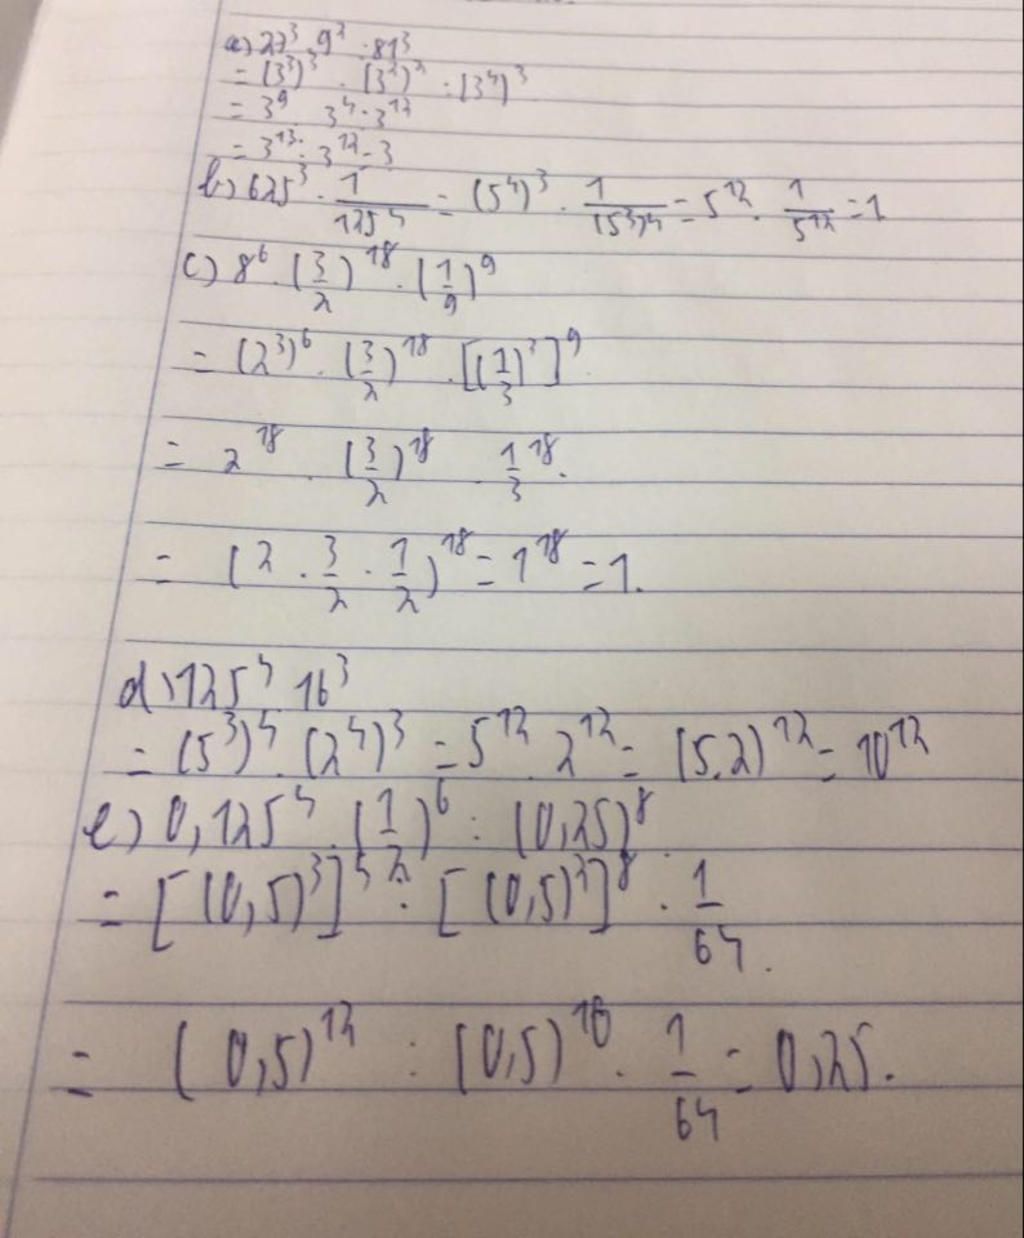 a) 27³ . 9² : 81³
= (3³)³ . (3²)² : (3⁴)³
= 3⁹ . 3⁴ . 3¹²
= 3¹³ : 3¹² = 3
b) 625³ . 1/125⁴ = (5⁴)³ . 1/(5³)⁴ = 5¹² . 1/5¹² = 1
c) 8⁶ . (3/2)¹⁸ . (1/9)⁹
= (2³)⁶ . (3/2)¹⁸ . [(1/3)²]⁹
= 2¹⁸ . (3/2)¹⁸ . 1/3¹⁸.
= (2 . 3/2 . 1/2)¹⁸ = 1¹⁸ = 1.
d) 125⁴ 16³
= (5³)⁴ . (2⁴)³ = 5¹² . 2¹² = (5.2)¹² = 10¹²
e) 0,125⁴ . (1/2)⁶ : (0,25)⁸
= [(0,5)³]⁴ : [(0,5)²]⁸ . 1/64.
= (0,5)¹² : (0,5)¹⁶ . 1/64 = 0,25.